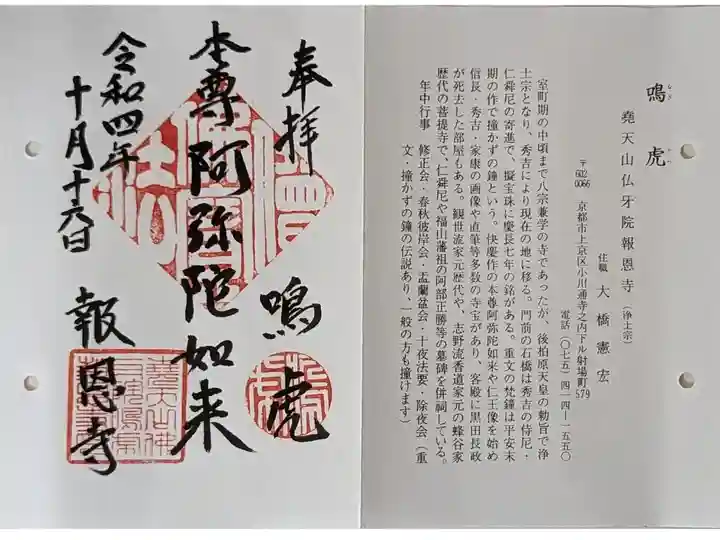 奉拝
鳴虎
本尊阿弥陀如来
令和四年
十月十六日
報恩寺
鳴虎
なき
堯天山仏牙院報恩寺(浄土宗)
住職 大橋憲宏
〒602
0066 京都市上京区小川通寺之内下ル射場町579
電話(〇七五)四一四—一五五〇
室町期の中頃まで八宗兼学の寺であったが、後柏原天皇の勅旨で浄
土宗となり、秀吉により現在の地に移る。門前の石橋は秀吉の侍尼・
仁舜尼の寄進で、擬宝珠に慶長七年の銘がある。重文の梵鐘は平安末
期の作で撞かずの鐘という。快慶作の本尊阿弥陀如来や仁王像を始め
信長・秀吉・家康の画像や直筆等多数の寺宝があり、客殿に黒田長政
が死去した部屋もある。観世流家元歴代や、志野流香道家元の蜂谷家
歴代の菩提寺で、仁舜尼や福山藩祖の阿部正勝等の墓碑を併祠している。
年中行事 修正会・春秋彼岸会・盂蘭盆会・十夜法要・除夜会(重
文・撞かずの鐘の伝説あり、一般の方も撞けます)